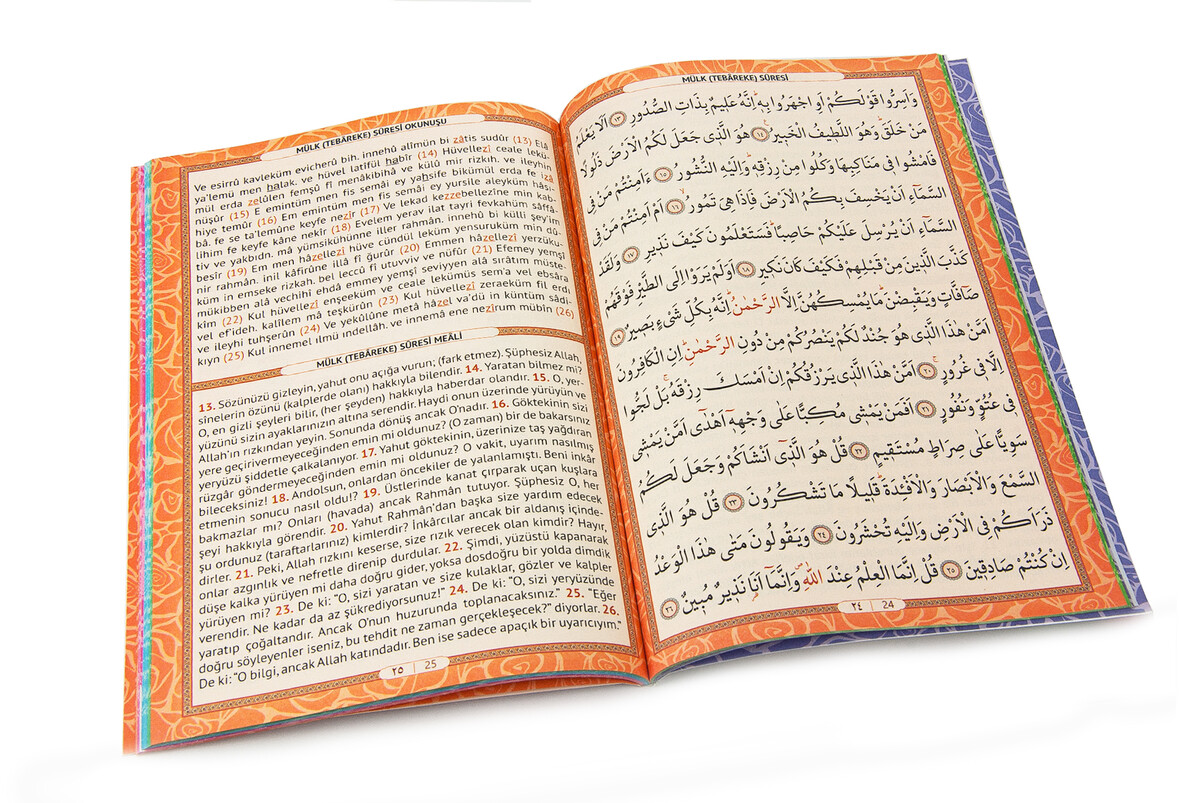 MÜLK (TEBÂREKE) SÛRESİ
وَاَسِرُّوا قَوْلَكُمْ اَوِ اجْهَرُوا بِهِ اِنَّهُ عَلِيمٌ بِذَاتِ الصُّدُورِ ١٣ اَلَا يَعْلَمُ
مَنْ خَلَقَ وَهُوَ اللَّطِيفُ الْخَبِيرُ ١٤ هُوَ الَّذِى جَعَلَ لَكُمُ الْاَرْضَ ذَلُولًا
فَامْشُوا فِى مَنَاكِبِهَا وَكُلُوا مِنْ رِزْقِهِ وَاِلَيْهِ النُّشُورُ ١٥ ءَاَمِنْتُمْ مَنْ فِى
السَّمَٓاءِ اَنْ يَخْسِفَ بِكُمُ الْاَرْضَ فَاِذَا هِىَ تَمُورُ ١٦ اَمْ اَمِنْتُمْ مَنْ فِى
السَّمَٓاءِ اَنْ يُرْسِلَ عَلَيْكُمْ حَاصِبًا فَسَتَعْلَمُونَ كَيْفَ نَذِيرِ ١٧ وَلَقَدْ
كَذَّبَ الَّذِينَ مِنْ قَبْلِهِمْ فَكَيْفَ كَانَ نَكِيرِ ١٨ اَوَلَمْ يَرَوْا اِلَى الطَّيْرِ فَوْقَهُمْ
صَٓافَّاتٍ وَيَقْبِضْنَ مَا يُمْسِكُهُنَّ اِلَّا الرَّحْمٰنُ اِنَّهُ بِكُلِّ شَىْءٍ بَصِيرٌ ١٩
اَمَّنْ هٰذَا الَّذِى هُوَ جُنْدٌ لَكُمْ يَنْصُرُكُمْ مِنْ دُونِ الرَّحْمٰنِ اِنِ الْكَافِرُونَ
اِلَّا فِى غُرُورٍ ٢٠ اَمَّنْ هٰذَا الَّذِى يَرْزُقُكُمْ اِنْ اَمْسَكَ رِزْقَهُ بَلْ لَجُّوا
فِى عُتُوٍّ وَنُفُورٍ ٢١ اَفَمَنْ يَمْشِى مُكِبًّا عَلٰى وَجْهِهِ اَهْدٰٓى اَمَّنْ يَمْشِى
سَوِيًّا عَلٰى صِرَاطٍ مُسْتَقِيمٍ ٢٢ قُلْ هُوَ الَّذِٓى اَنْشَاَكُمْ وَجَعَلَ لَكُمُ
السَّمْعَ وَالْاَبْصَارَ وَالْاَفْـِٔدَةَ قَلِيلًا مَا تَشْكُرُونَ ٢٣ قُلْ هُوَ الَّذِى
ذَرَاَكُمْ فِى الْاَرْضِ وَاِلَيْهِ تُحْشَرُونَ ٢٤ وَيَقُولُونَ مَتٰى هٰذَا الْوَعْدُ
اِنْ كُنْتُمْ صَادِقِينَ ٢٥ قُلْ اِنَّمَا الْعِلْمُ عِنْدَ اللّٰهِ وَاِنَّمَٓا اَنَا۬ نَذِيرٌ مُبِينٌ ٢٦
٢٤ | 24
MÜLK (TEBÂREKE) SÛRESİ OKUNUŞU
Ve esirrû kavleküm evicherû bih. innehû alîmün bi zâtis sudûr (13) Elâ
ya'lemü men halak. ve hüvel latîfül habîr (14) Hüvellezî ceale lekü-
mül erda zelûlen femşû fî menâkibihâ ve külû mir rizkıh. ve ileyhin
nüşûr (15) E emintüm men fis semâi ey yahsife bikümül erda fe izâ
hiye temûr (16) Em emintüm men fis semâi ey yursile aleyküm hâsı-
bâ. fe se ta'lemûne keyfe nezîr (17) Ve lekad kezzebellezîne min kab-
lihim fe keyfe kâne nekîr (18) Evelem yerav ilat tayri fevkahüm sâffâ-
tiv ve yakbıdn. mâ yümsikühünne iller rahmân. innehû bi külli şey'im
besîr (19) Em men hâzellezî hüve cündül leküm yensuruküm min dû-
nir rahmân. inil kâfirûne illâ fî ğurûr (20) Emmen hâzellezî yerzükü-
küm in emseke rizkah. bel leccû fî utuvviv ve nüfûr (21) Efemey yemşî
mükibben alâ vechihî ehdâ emmey yemşî seviyyen alâ sırâtım müste-
kîm (22) Kul hüvellezî enşeeküm ve ceale lekümüs sem'a vel ebsâra
vel ef'ideh. kalîlem mâ teşkürûn (23) Kul hüvellezî zeraeküm fil erdı
ve ileyhi tuhşerûn (24) Ve yekûlûne metâ hâzel va'dü in küntüm sâdi-
kıyn (25) Kul innemel ılmü indellâh. ve innemâ ene nezîrum mübîn (26)
MÜLK (TEBÂREKE) SÛRESİ MEÂLİ
13. Sözünüzü gizleyin, yahut onu açığa vurun; (fark etmez). Şüphesiz Allah,
sinelerin özünü (kalplerde olanı) hakkıyla bilendir. 14. Yaratan bilmez mi?
O, en gizli şeyleri bilir, (her şeyden) hakkıyla haberdar olandır. 15. O, yer-
yüzünü sizin ayaklarınızın altına serendir. Haydi onun üzerinde yürüyün ve
Allah'ın rızkından yeyin. Sonunda dönüş ancak O'nadır. 16. Göktekinin sizi
yere geçirivermeyeceğinden emin mi oldunuz? (O zaman) bir de bakarsınız
yeryüzü şiddetle çalkalanıyor. 17. Yahut göktekinin, üzerinize taş yağdıran
rüzgâr göndermeyeceğinden emin mi oldunuz? O vakit, uyarım nasılmış
bileceksiniz! 18. Andolsun, onlardan öncekiler de yalanlamıştı. Beni inkâr
etmenin sonucu nasıl oldu!? 19. Üstlerinde kanat çırparak uçan kuşlara
bakmazlar mı? Onları (havada) ancak Rahmân tutuyor. Şüphesiz O, her
şeyi hakkıyla görendir. 20. Yahut Rahmân'dan başka size yardım edecek
şu ordunuz (taraftarlarınız) kimlerdir? İnkârcılar ancak bir aldanış içinde-
dirler. 21. Peki, Allah rızkını keserse, size rızık verecek olan kimdir? Hayır,
onlar azgınlık ve nefretle direnip durdular. 22. Şimdi, yüzüstü kapanarak
düşe kalka yürüyen mi daha doğru gider, yoksa dosdoğru bir yolda dimdik
yürüyen mi? 23. De ki: "O, sizi yaratan ve size kulaklar, gözler ve kalpler
verendir. Ne kadar da az şükrediyorsunuz!" 24. De ki: "O, sizi yeryüzünde
yaratıp çoğaltandır. Ancak O'nun huzurunda toplanacaksınız." 25. "Eğer
doğru söyleyenler iseniz, bu tehdit ne zaman gerçekleşecek?" diyorlar. 26.
De ki: "O bilgi, ancak Allah katındadır. Ben ise sadece apaçık bir uyarıcıyım."
٢٥ | 25